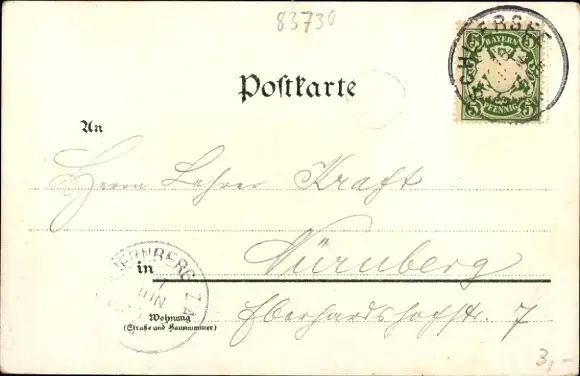 83730
BAYERN
5 5
PFENNIG
5 5
Postkarte
An
Herrn Lehrer Kraft
in Nürnberg
NUERNBERG
JUN
Wohnung
(Straße und Hausnummer)
Eberhardshofstr. 7
3,-